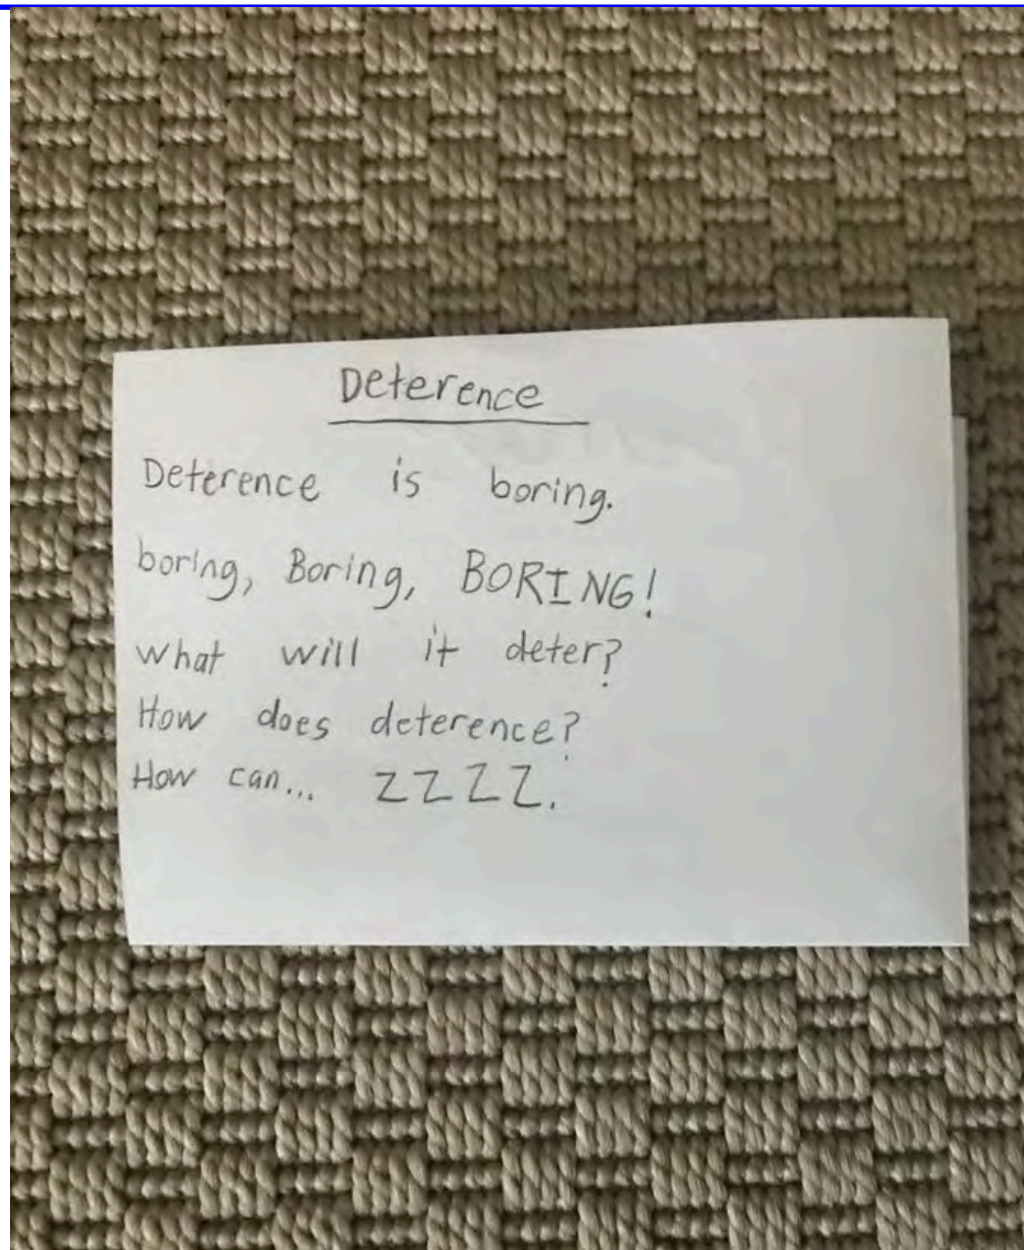 Deterence
Deterence is boring.
boring, Boring, BORING!
What will it deter?
How does deterence?
How can... ZZZZ.